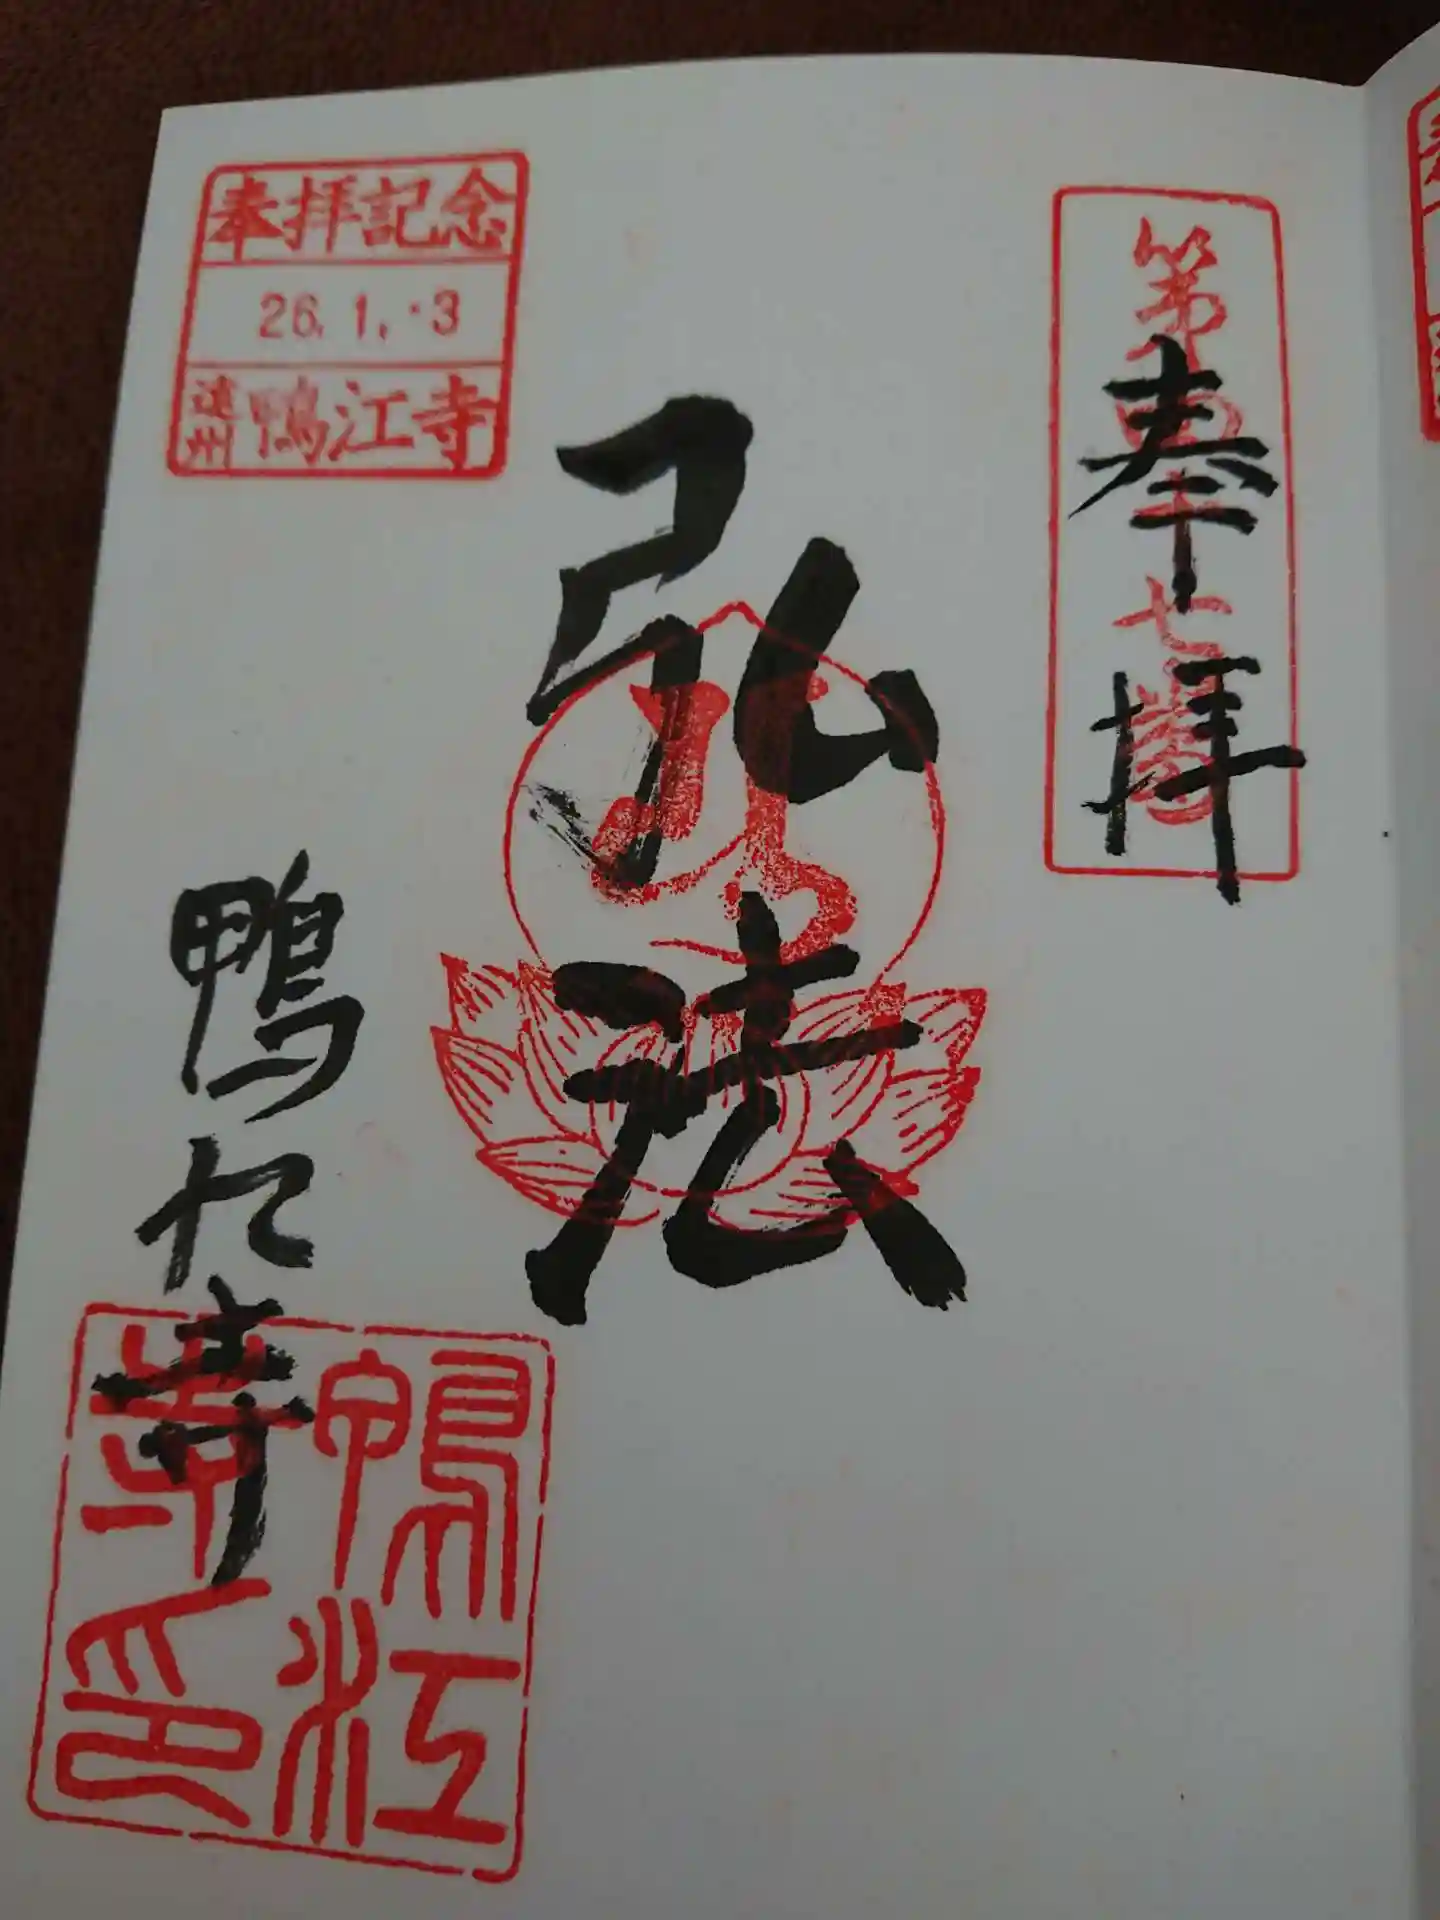 第四十七番
奉拝
弘法
奉拝記念
26.1.-3
遠州 鴨江寺
鴨江寺
鴨江寺印